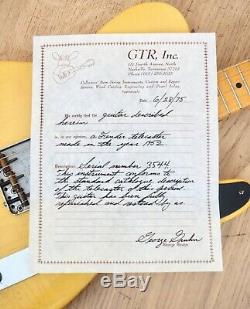 GTR, Inc.
111 Fourth Avenue, North
Nashville, Tennessee 37219
Collectors' Item String Instruments, Custom and Expert
Repairs, Wood Carving, Engraving and Pearl Inlay,
Appraisals
Date 6/28/75
We certify that the guitar described
herein
is, in our opinion, a Fender telecaster
made in the year 1952
Description: Serial number 3544
This instrument conforms to
the standard catalogue description
of the telecaster of the period.
This guitar has been partly
refinished and restored by us.
George Gruhn
George Gruhn